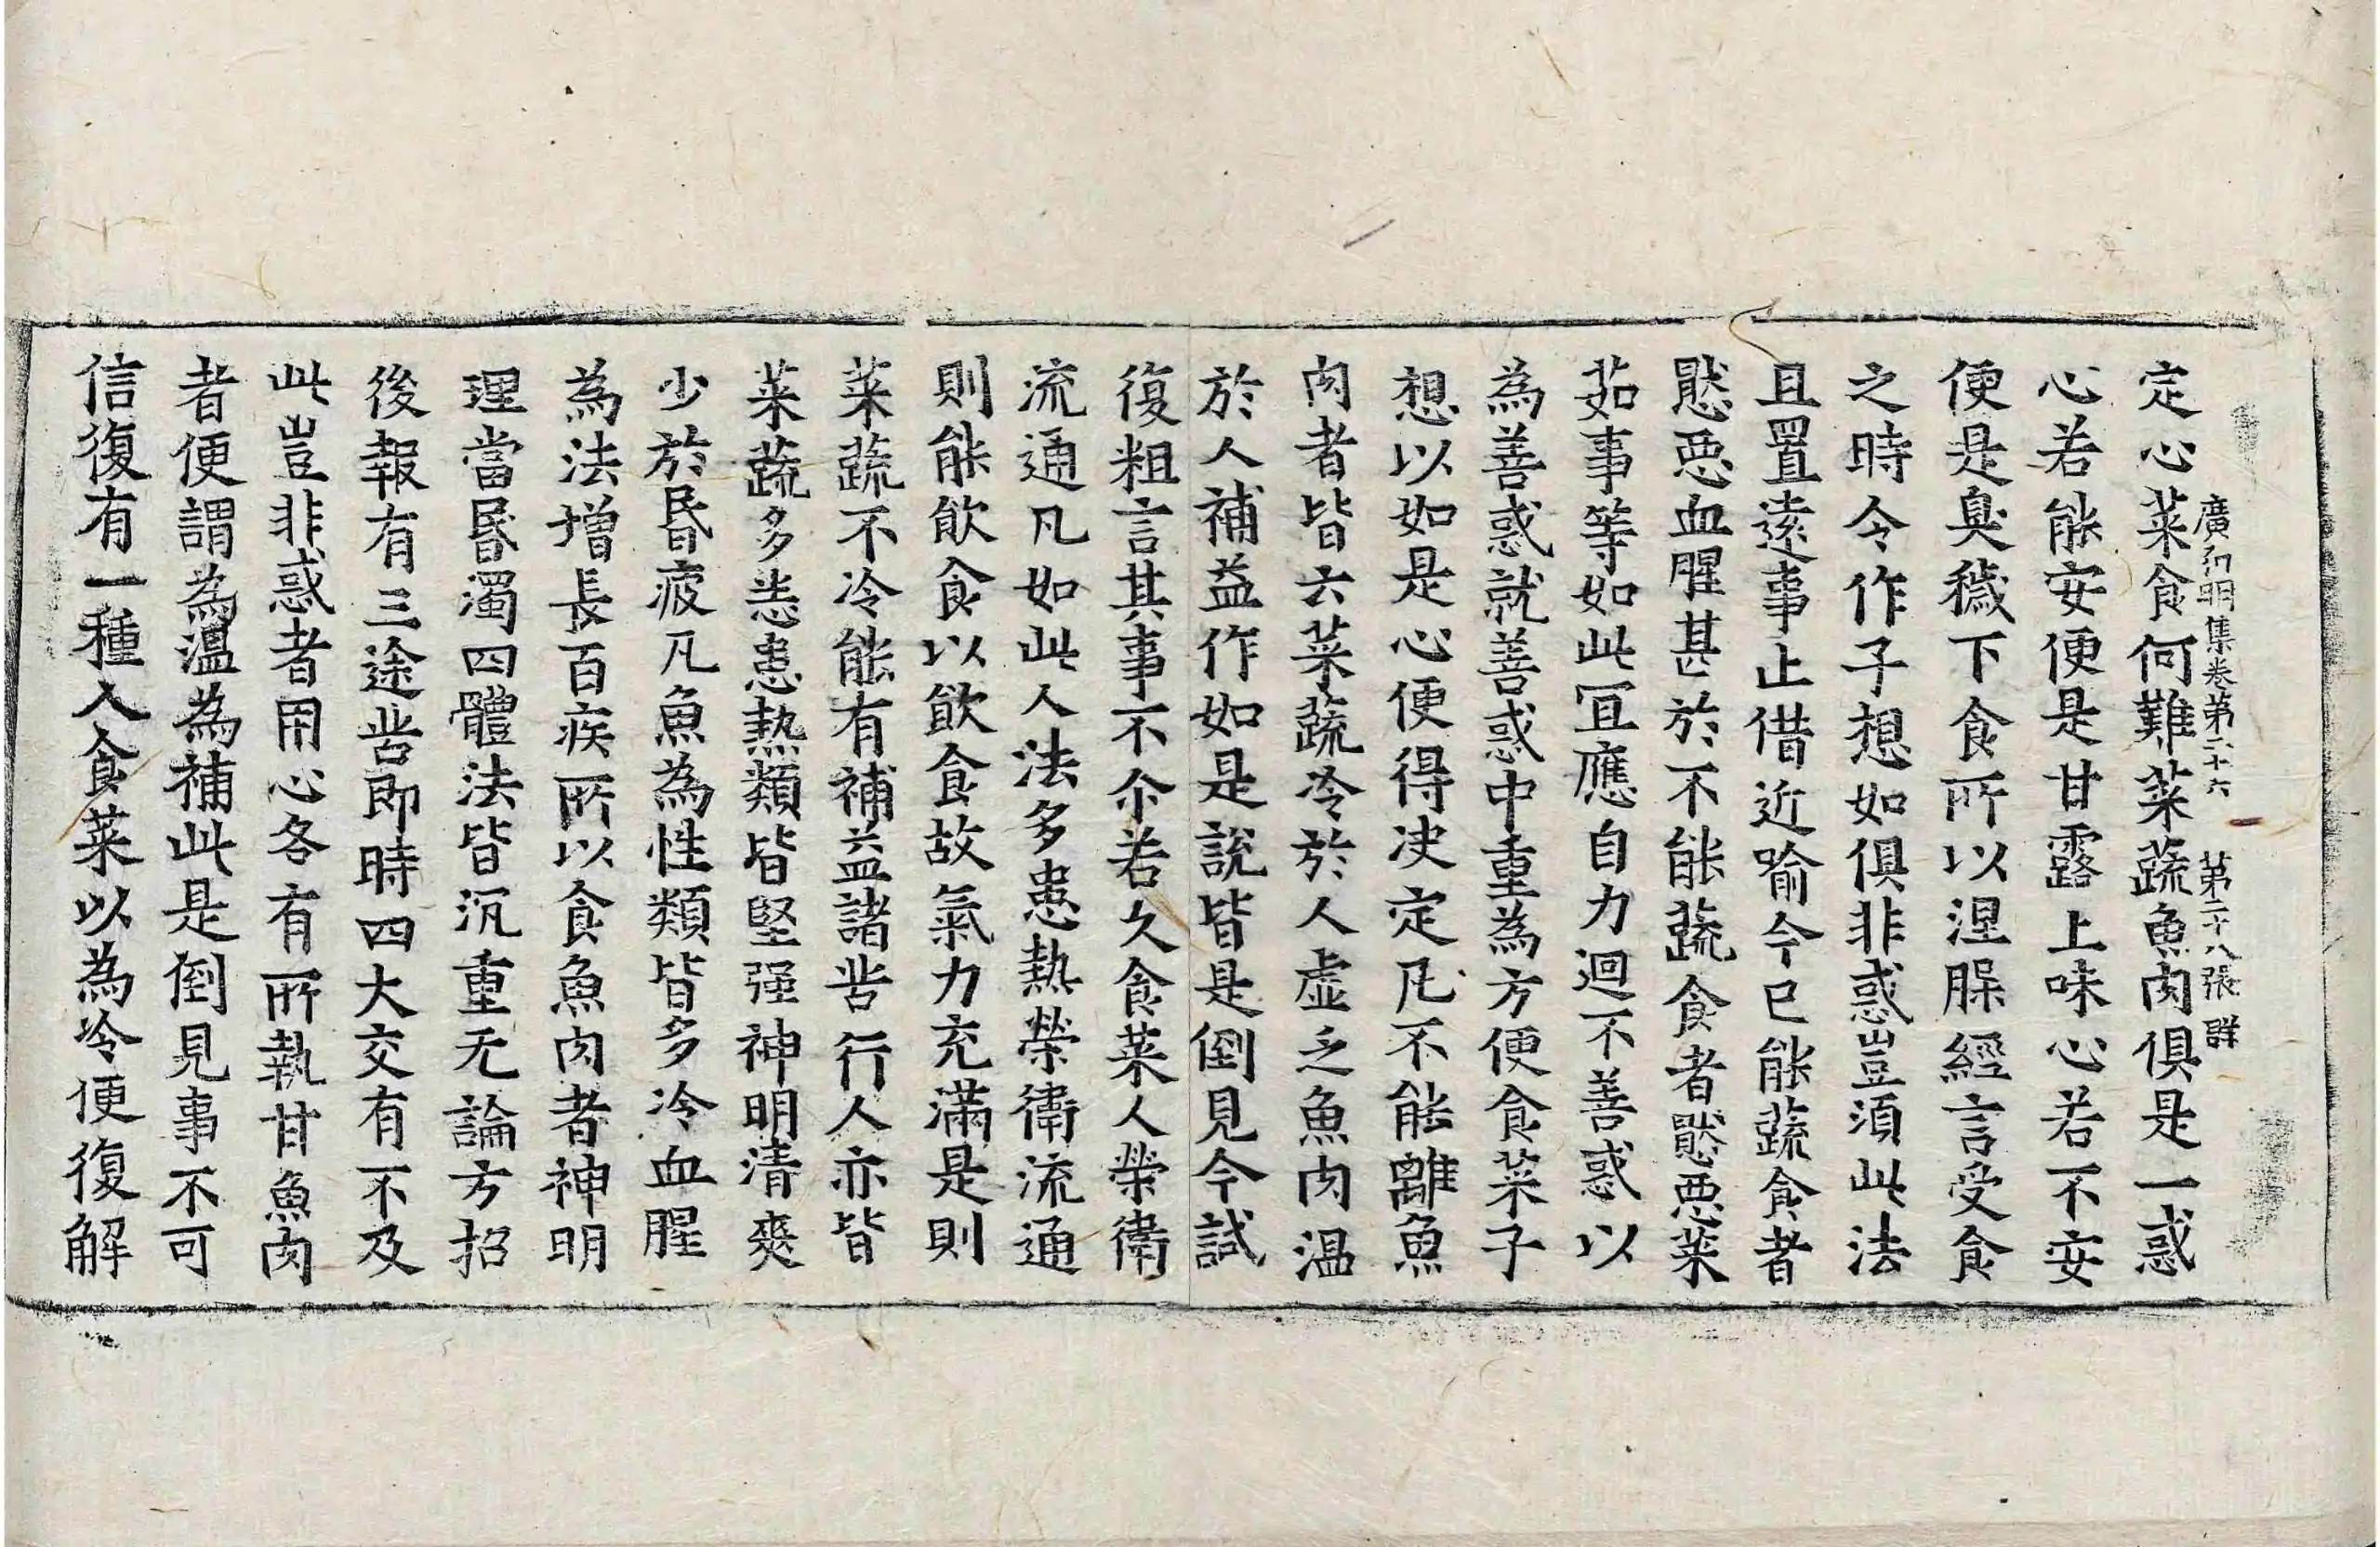 廣弘明集卷第二十六 第二十八張 群
定心菜食何難菜蔬魚肉俱是一惑
心若能安便是甘露上味心若不安
便是臭穢下食所以涅槃經言受食
之時令作子想如俱非惑豈湏此法
且置遠事止借近喻今已能蔬食者
猒惡血腥甚於不能蔬食者猒惡菜
茹事等如此冝應自力迴不善惑以
為善惑就善惑中重為方便食菜子
想以如是心便得决定凡不能離魚
肉者皆云菜蔬冷於人虛乏魚肉温
於人補益作如是說皆是倒見今試
復粗言其事不尒若久食菜人榮衛
流通凡如此人法多患熱榮衛流通
則能飲食以飲食故氣力充滿是則
菜蔬不冷能有補益諸苦行人亦皆
菜蔬多悉患熱類皆堅强神明清爽
少於昬疲凡魚為性類皆多冷血腥
為法增長百疾所以食魚肉者神明
理當昬濁四體法皆沉重无論方招
後報有三途苦即時四大交有不及
此豈非惑者用心各有所執甘魚肉
者便謂為温為補此是倒見事不可
信復有一種人食菜以為冷便復解